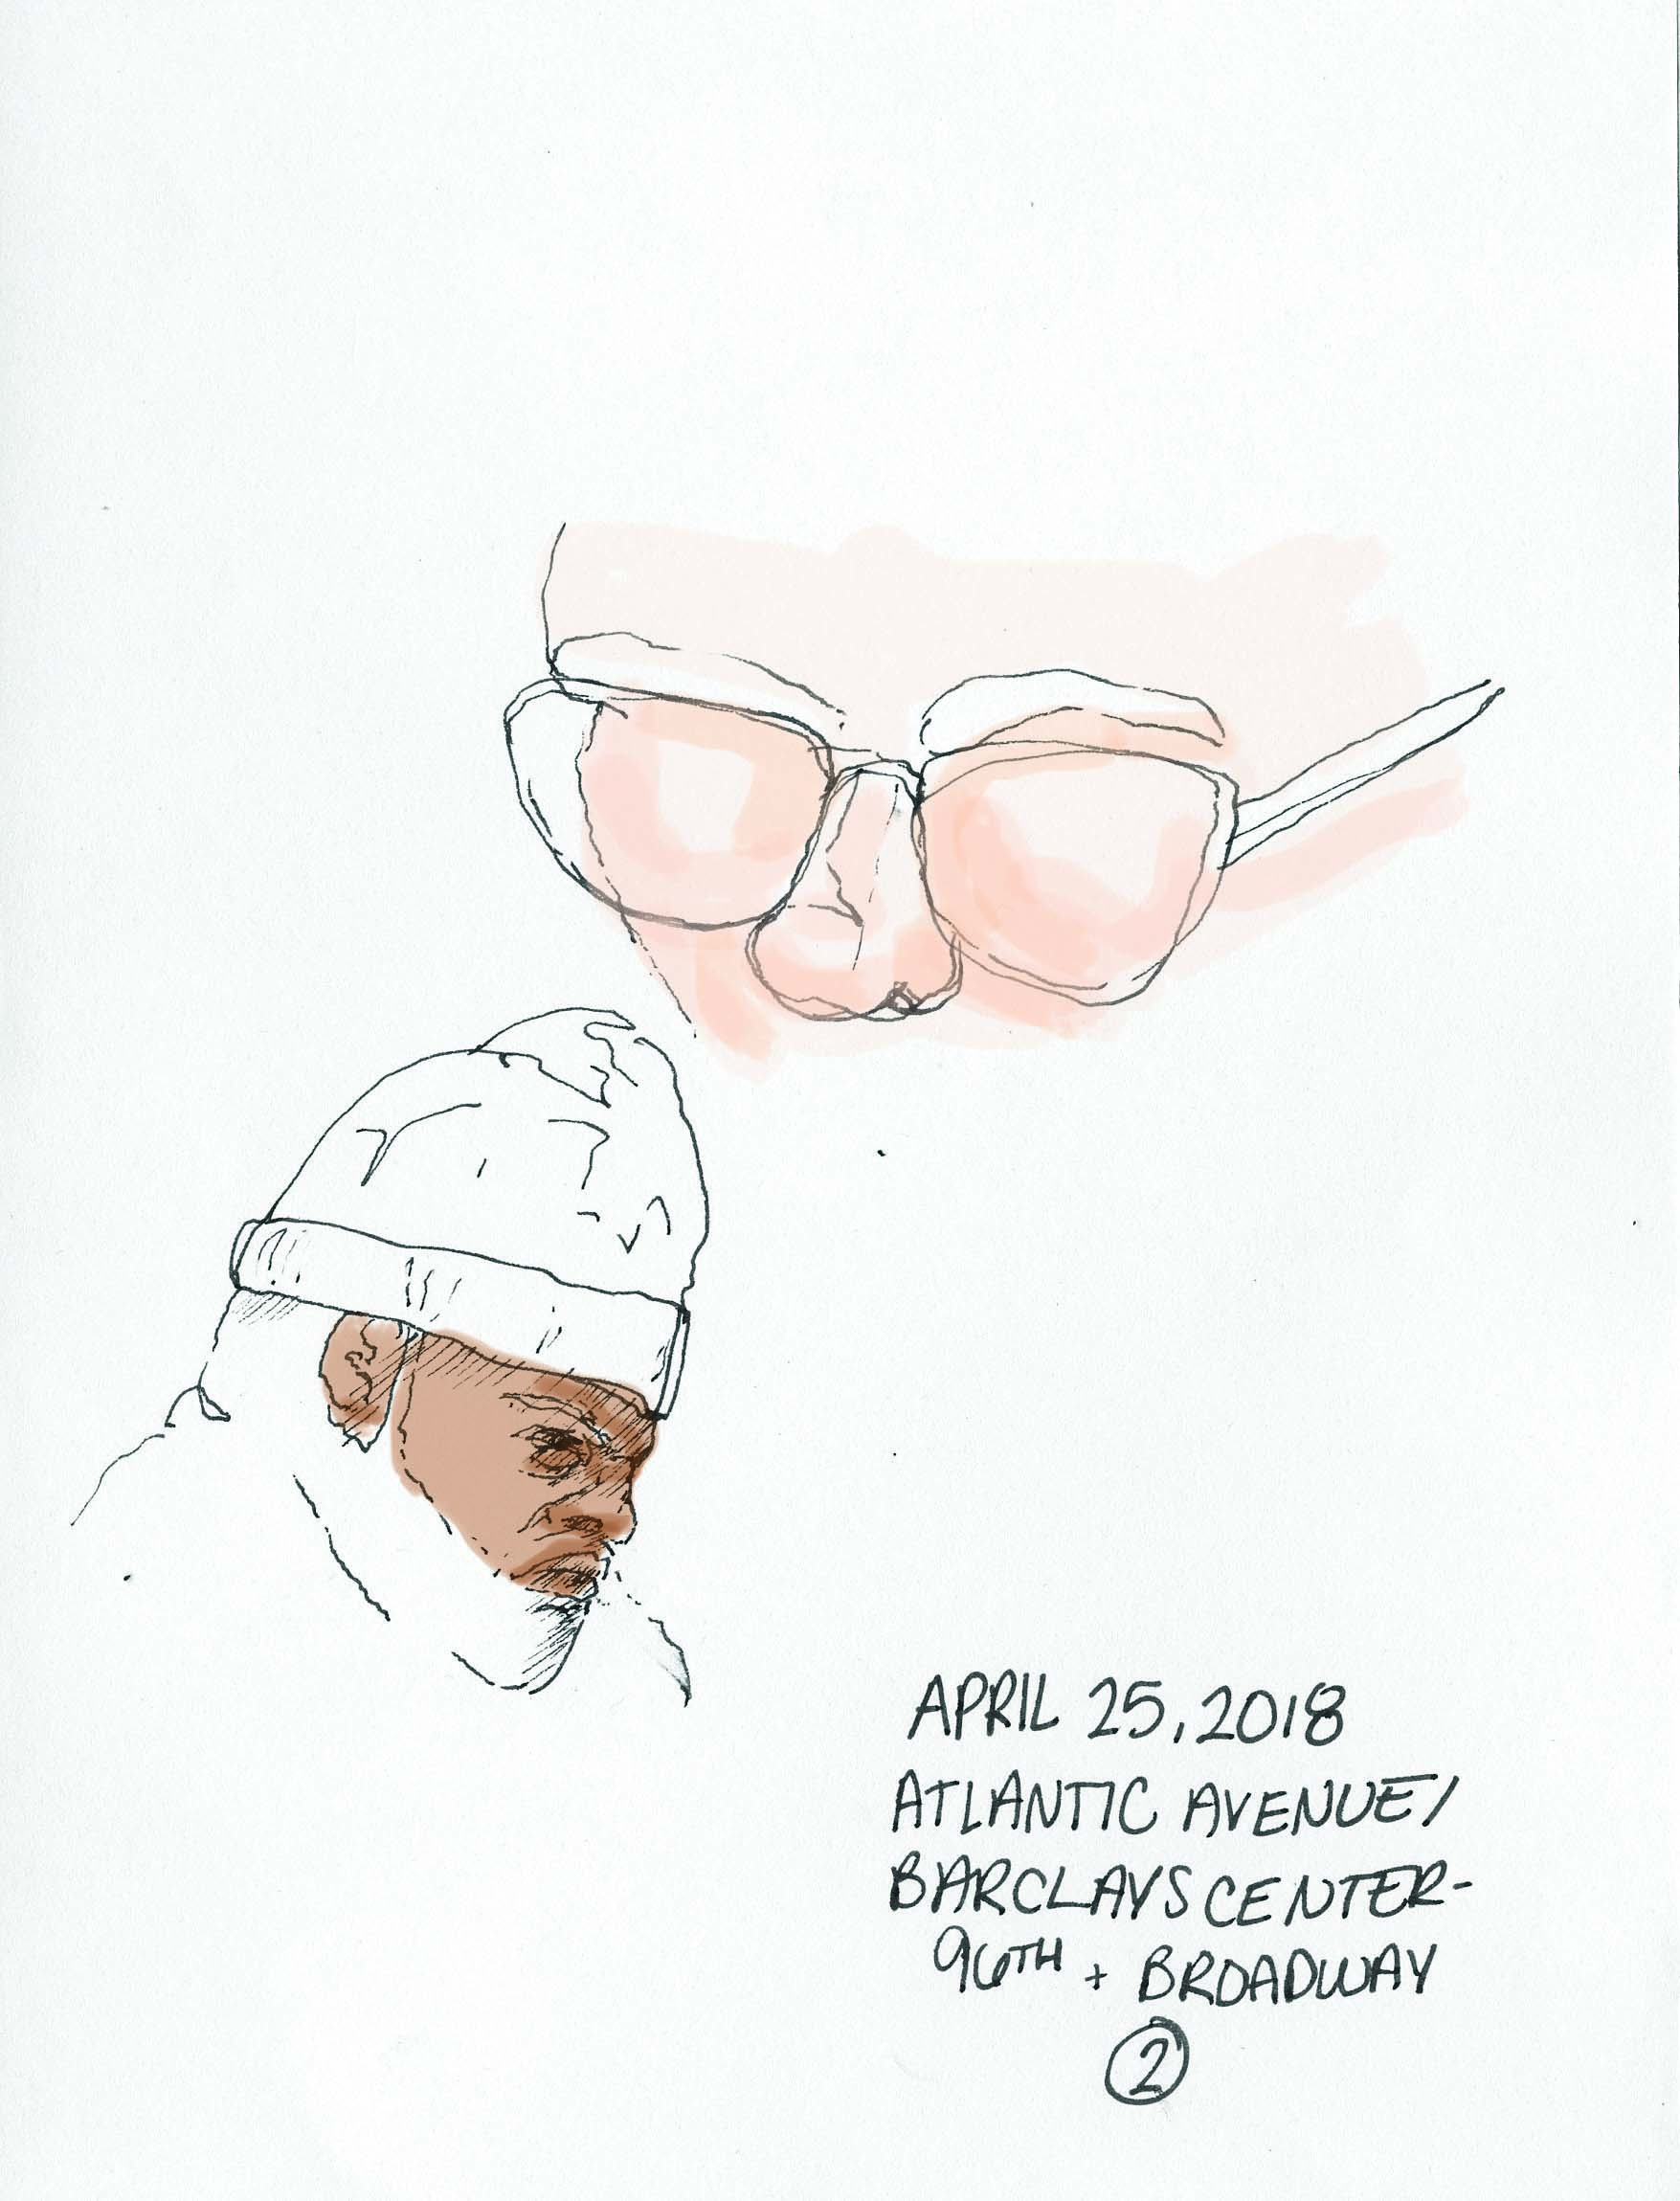 APRIL 25, 2018
ATLANTIC AVENUE/
BARCLAYS CENTER-
96TH + BROADWAY
2